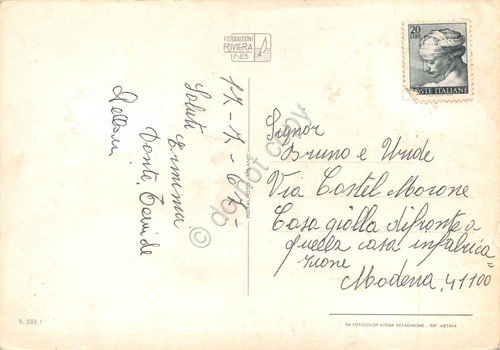 FOTOEDIZIONI
RIVIERA
NB
20
LIRE
POSTE ITALIANE
17-7-67-
Saluti
Erminia
Dante, Davide
Signor
Bruno e
Via Castel Morone
Casa gialla difronte a
quella casa in fabrica=
zione
Modena, 41100
N. 285
DA FOTOCOLOR KODAK EKTACHROME - RIP. VIETATA